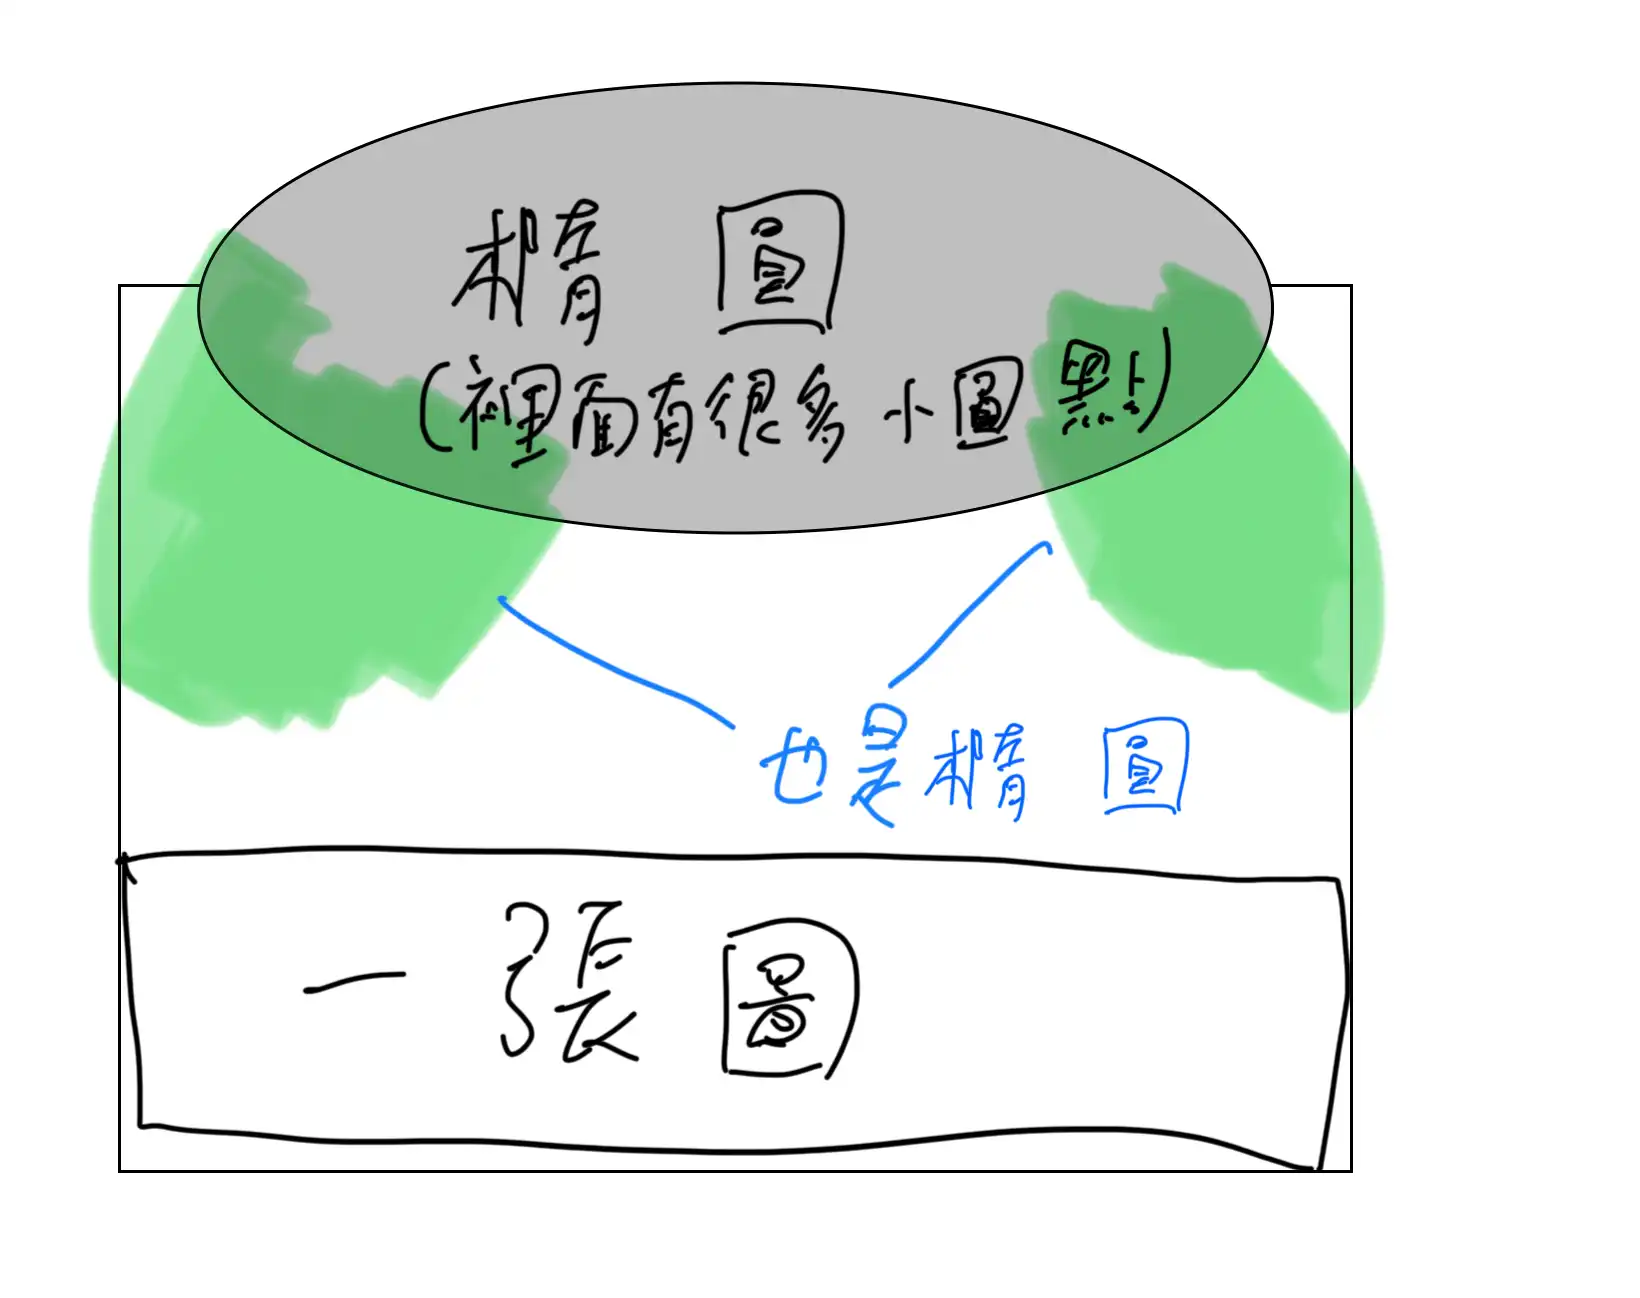 橢圓
(裡面有很多小圓點)
也是橢圓
一張圖